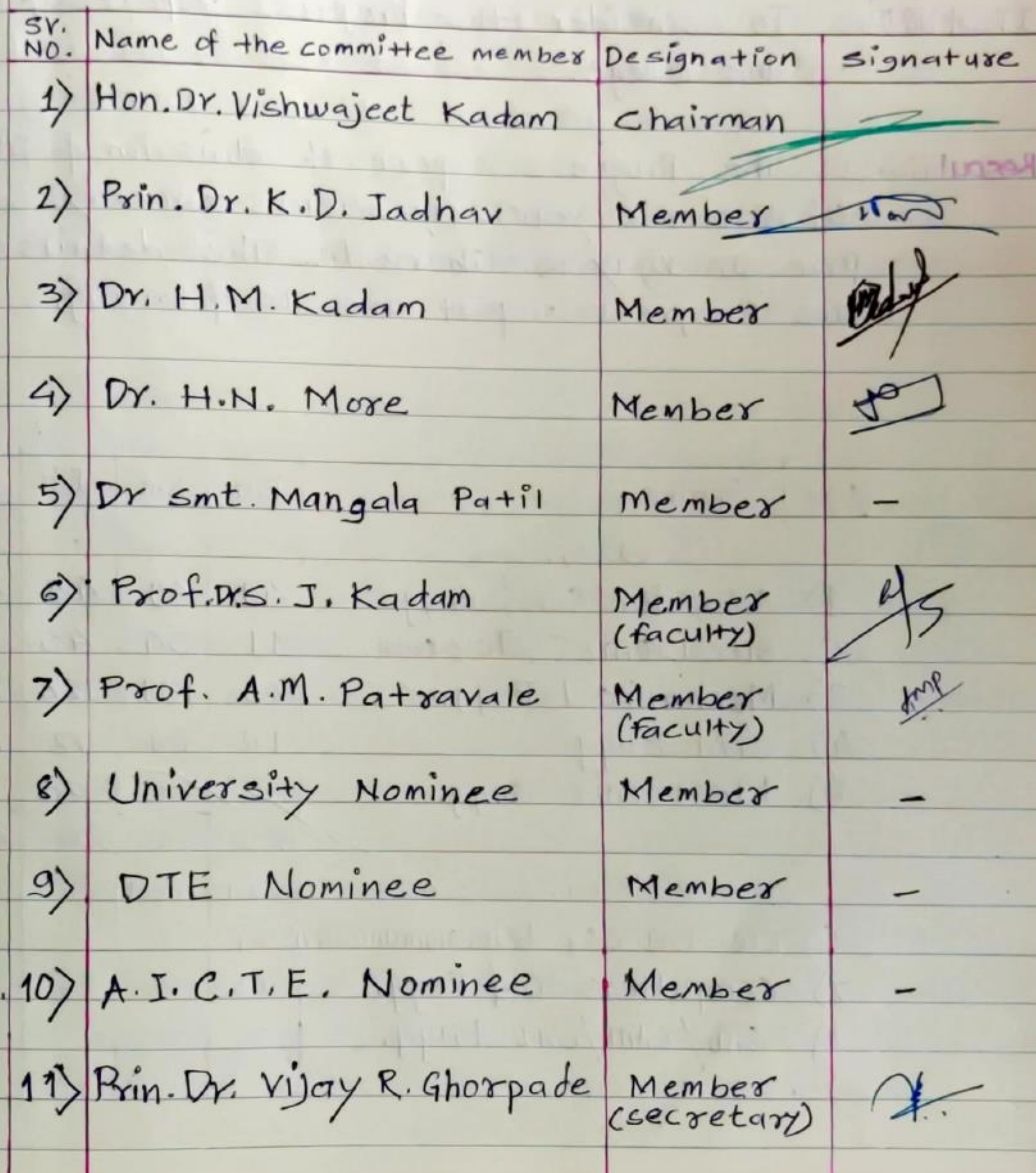 Sr. No. Name of the committee member Designation signature
1) Hon. Dr. Vishwajeet Kadam Chairman
2) Prin. Dr. K.D. Jadhav Member
3) Dr. H.M. Kadam Member
4) Dr. H.N. More Member
5) Dr smt. Mangala Patil Member -
6) Prof. Dr. S. J. Kadam Member
(faculty)
7) Prof. A.M. Patravale Member
(faculty)
8) University Nominee Member -
9) DTE Nominee Member -
10) A.I.C.T.E. Nominee Member -
11) Prin. Dr. Vijay R. Ghorpade Member
(secretary)